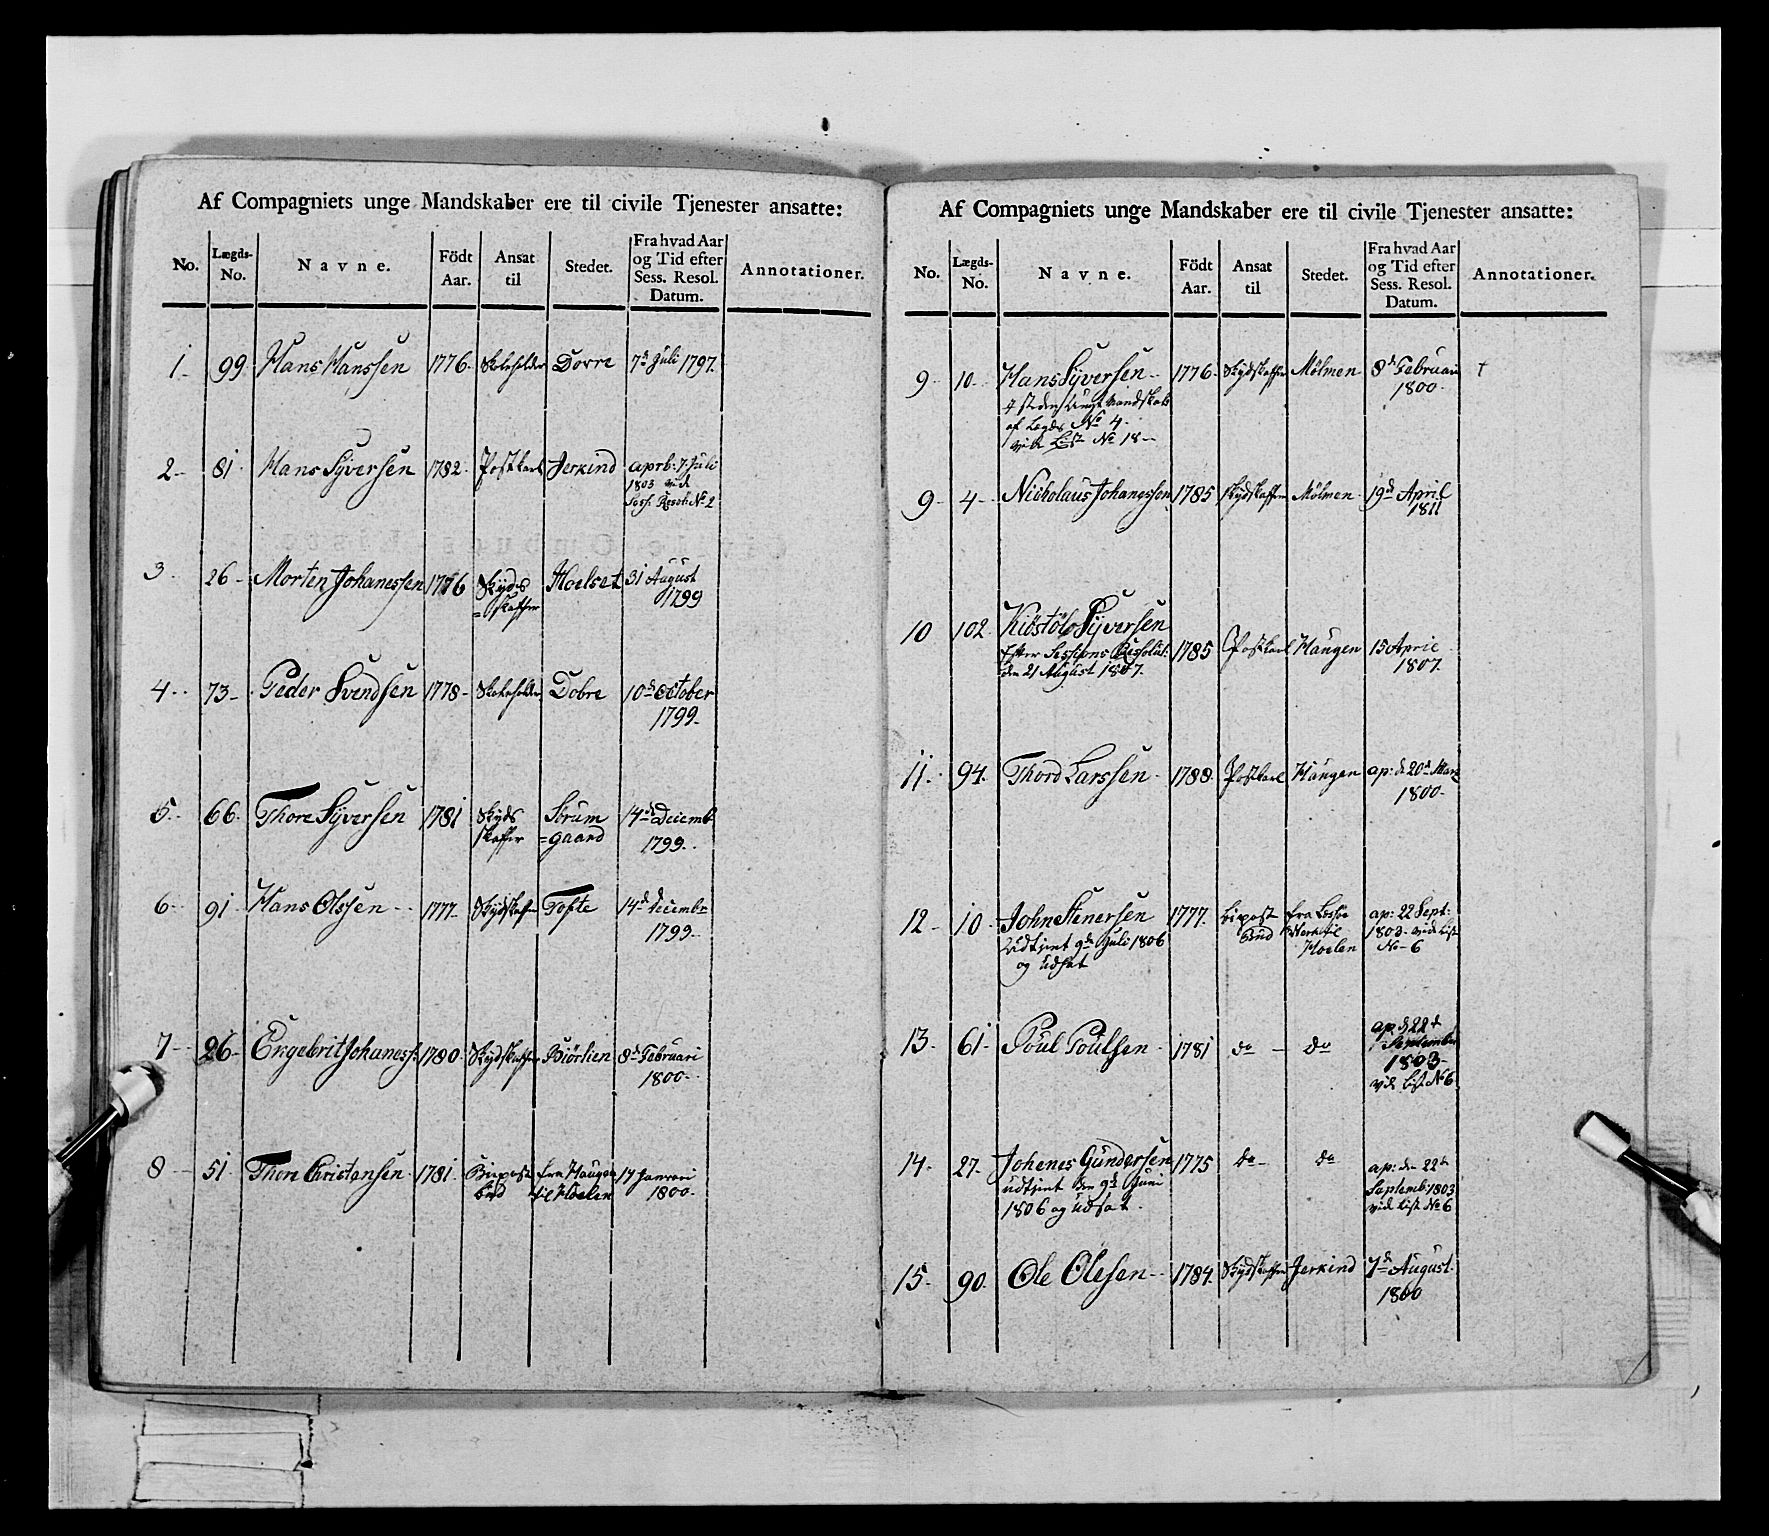 Af Compagniets unge Mandskaber ere til civile Tjenester ansatte:
No. Lægds-No. Navne. Födt Aar. Ansat til Stedet. Fra hvad Aar og Tid efter Sess. Resol. Datum. Annotationer.
1 99 Hans Hanssen 1776 Skoleholder Dovre 7de Juli 1797.
2 81 Hans Syversen 1782 Postkarl Jerkind aprb: 7 Juli
1803 vid
Sess. Resol: No 2
3 26 Morten Johanessen 1776 Skyds Hoelset 31 August
=skaffer 1799
4 73 Peder Svendsen 1778 Skoleholder Dobre 10de October
1799
5 66 Thore Syversen 1781 Skyds Strum 14de Decemb
skaffer =gaard 1799
6 91 Hans Olssen 1777 Skydskaffer Tofte 14de Decembr
1799
7 26 Engebrit Johaness: 1780 Skydskaffer Biörlien 8de Februari
1800
8 51 Thore Christensen 1781 Biepost fra Haugen 17 Januari
bud til Hoelen 1800
Af Compagniets unge Mandskaber ere til civile Tjenester ansatte:
No. Lægds-No. Navne. Födt Aar. Ansat til Stedet. Fra hvad Aar og Tid efter Sess. Resol. Datum. Annotationer.
9 10 Hans Syversen 1776 Skydskaffer Mölmen 8de Februari †
1800
i steden Ungt Mandskab
af Lægds No 4
vide List No 18
9 4 Nickolaus Johanessen 1785 Skydskaffer Mölmen 19de April
1811
10 102 Kiöstöl Syversen 1785 Postkarl Haugen 15 Aprie
Efter Sessions Resolut: 1807
den 21 August 1807.
11 94 Thord Larssen 1788 Postkarl Haugen ap: d 20de Marz
1800
12 10 John Stenersen 1777 biepost fra Lessöe ap: 22 Sept:
Udtient 9de Juli 1806 Bud Værk til 1803 vide List
og udsat Hoelen No 6
13 61 Poul Poulsen 1781 do do ap: d 22de
September
1803
vide List No 6
14 27 Johenes Gundersen 1775 do do ap: den 22de
udtient den 9de Juni Septemb: 1803
1806 og udsat vide List No 6
15 90 Ole Olesen 1784 Skydskaffer Jerkind 7de August
1800